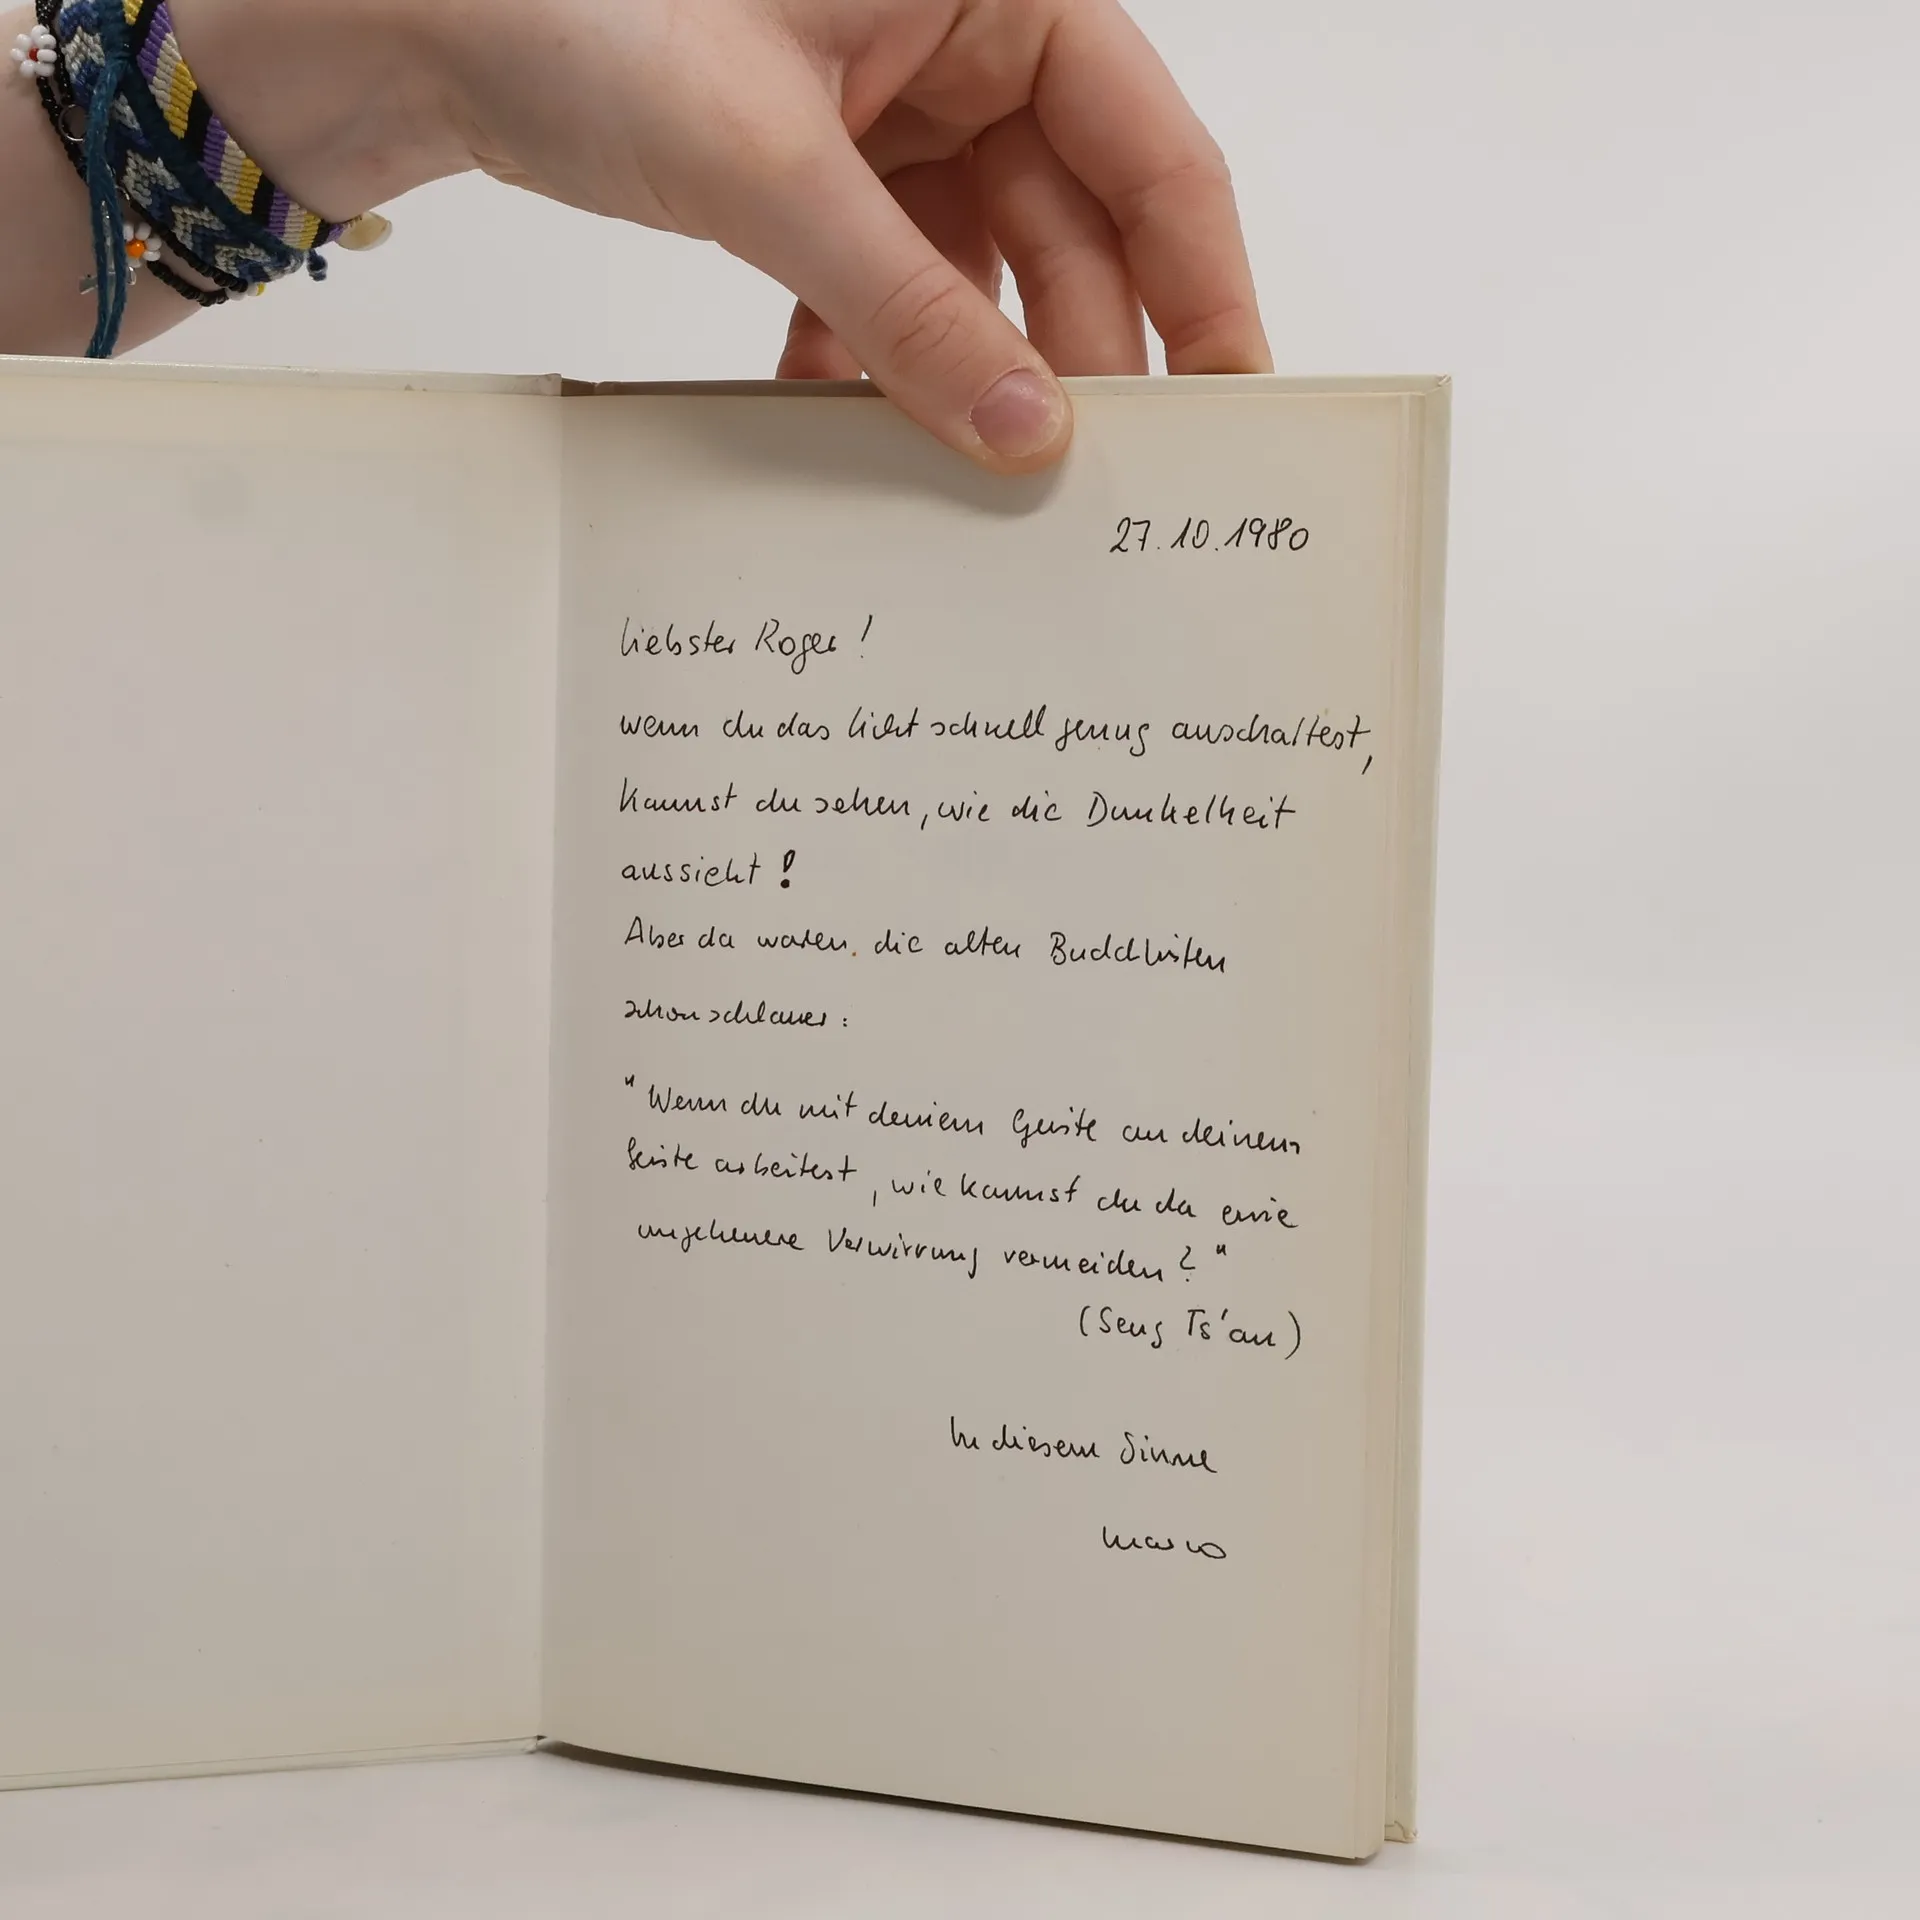 27.10.1980
Liebster Roger!
wenn du das Licht schnell genug anschaltest,
kannst du sehen, wie die Dunkelheit
aussieht!
Aber da waren die alten Buddhisten
schon schlauer:
"Wenn du mit deinem Geiste an deinem
Geiste arbeitest, wie kannst du da eine
ungeheuere Verwirrung vermeiden?"
(Seng Ts'an)
In diesem Sinne